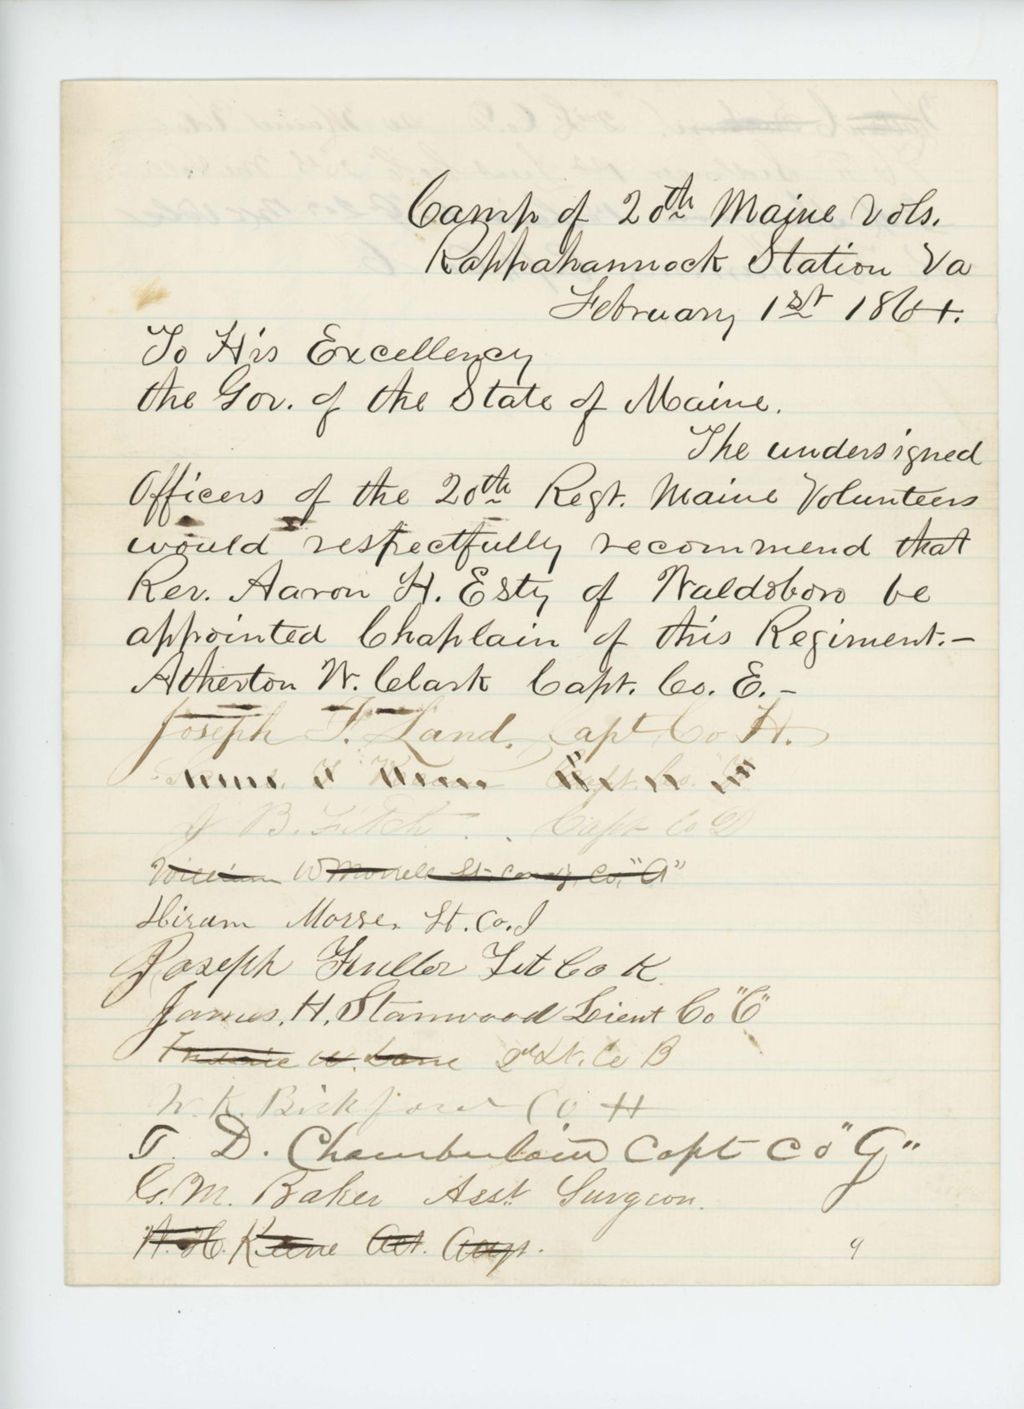 Camp of 20th Maine Vols.
Rappahannock Station Va
February 1st 1864.
To His Excellency
the Gov. of the State of Maine.
The undersigned
Officers of the 20th Regt. Maine Volunteers
would respectfully recommend that
Rev. Aaron H. Esty of Waldoboro be
appointed Chaplain of this Regiment.-
Atherton W. Clark Capt. Co. E.-
Joseph F. Land, Capt Co H.
Capt. Co.
J B. Fitch . . Capt Co D
William W Morrell Co, "A"
Hiram Morse, Lt. Co. I
Joseph Fuller Co K
James. H. Stanwood Lieut Co "C"
W. Lane 2d Lt. Co B
W. K. Bickford Co H
T. D. Chamberlain Capt Co "G"
G. M. Baker Asst Surgeon.
A. H. Keene Act. Adjt.